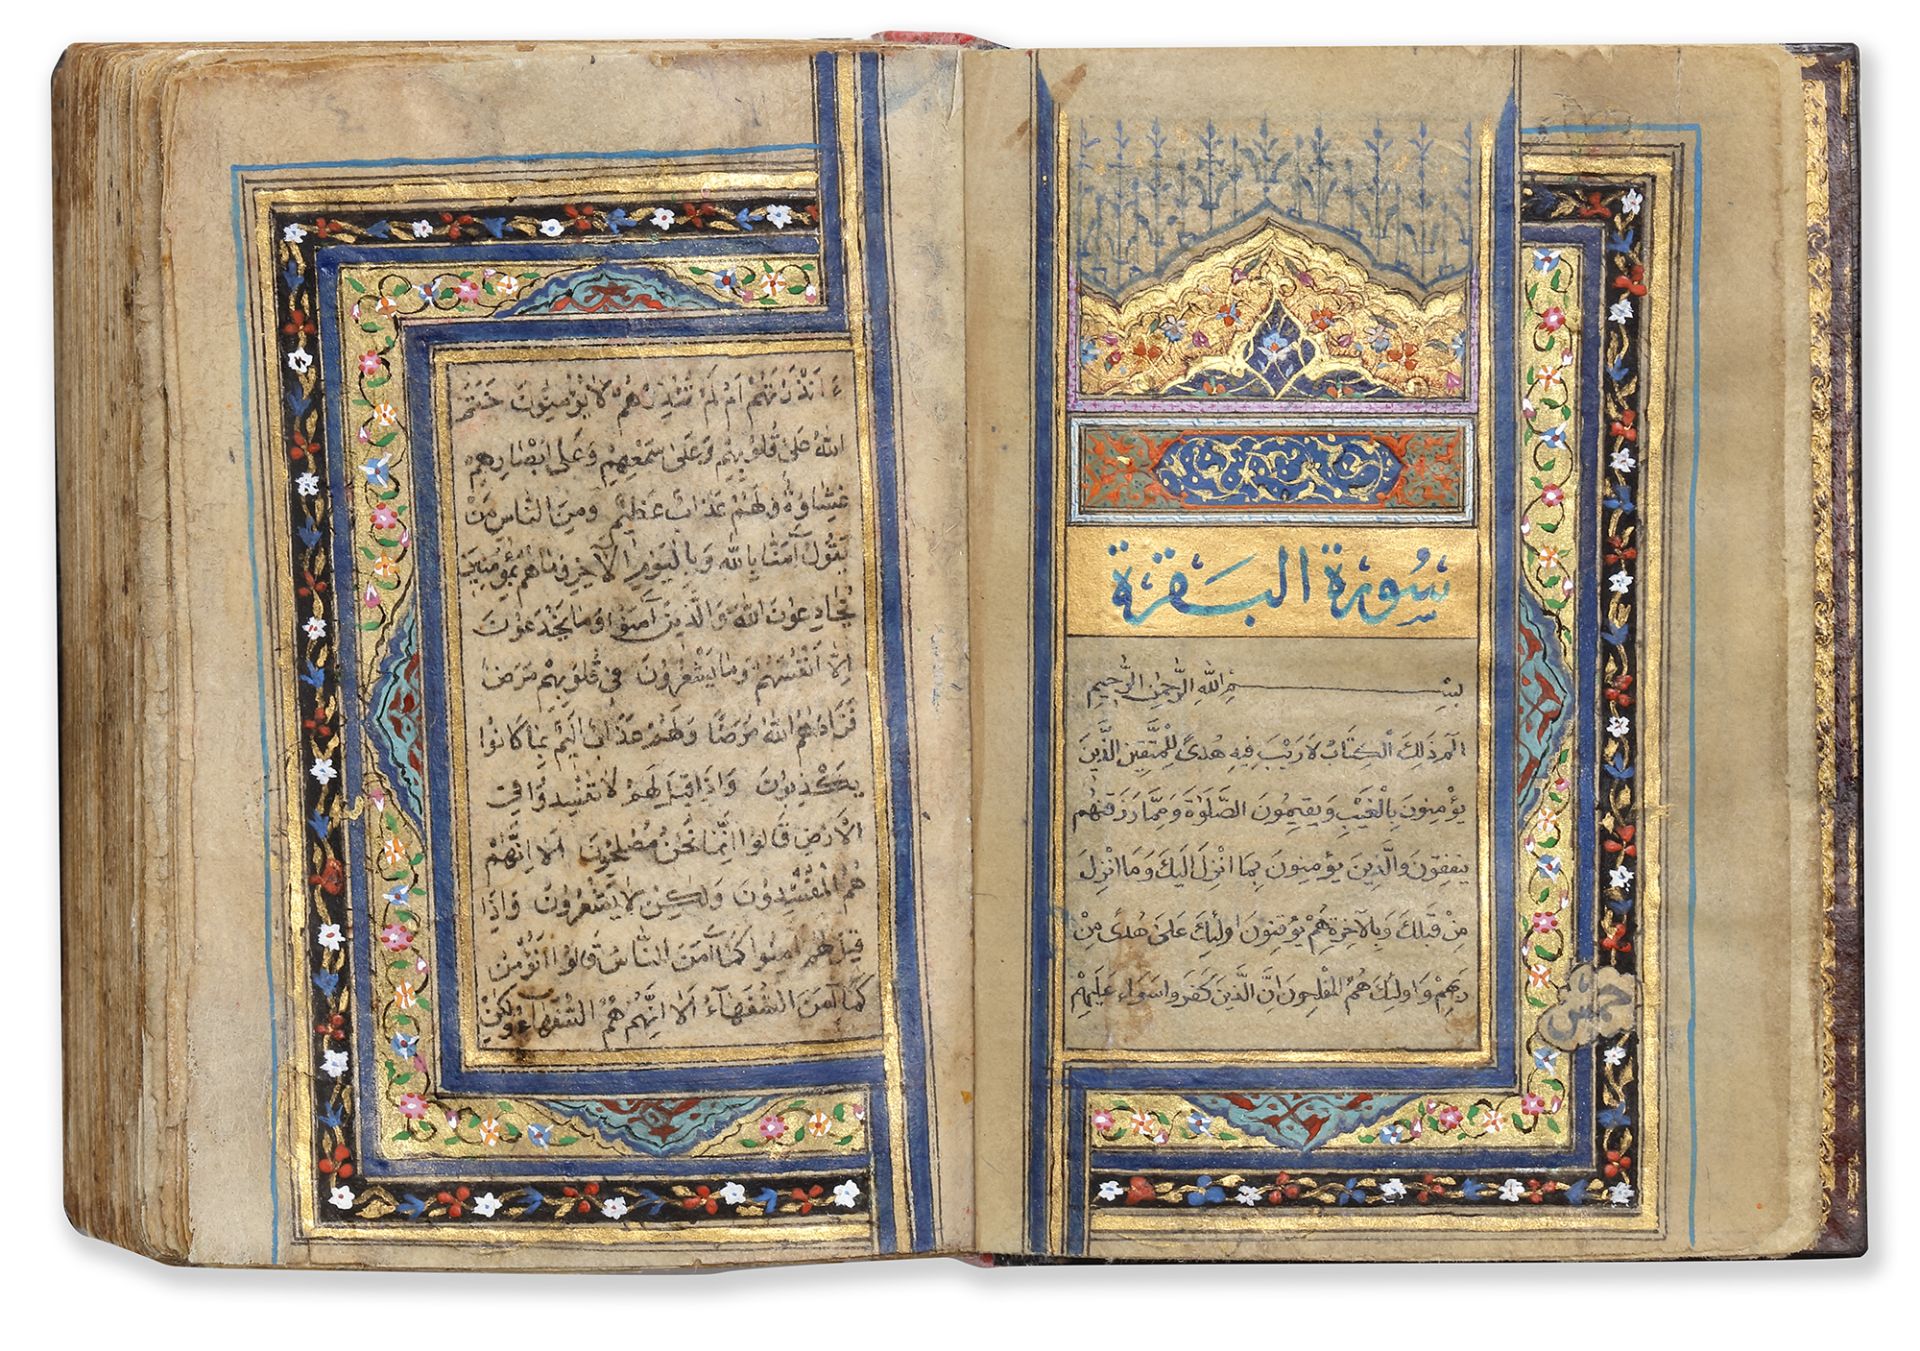 سُورَة البَقَرَة
بِسْمِ اللهِ الرَّحْمٰنِ الرَّحِيمِ
الم ذَلِكَ الْكِتَابُ لَا رَيْبَ فِيهِ هُدًى لِلْمُتَّقِينَ الَّذِينَ
يُؤْمِنُونَ بِالْغَيْبِ وَيُقِيمُونَ الصَّلٰوةَ وَمِمَّا رَزَقْنٰهُمْ
يُنْفِقُونَ وَالَّذِينَ يُؤْمِنُونَ بِمَا اُنْزِلَ اِلَيْكَ وَمَا اُنْزِلَ
مِنْ قَبْلِكَ وَبِالْآخِرَةِ هُمْ يُوقِنُونَ اُولٰئِكَ عَلَىٰ هُدًى مِنْ
رَبِّهِمْ وَاُولٰئِكَ هُمُ الْمُفْلِحُونَ اِنَّ الَّذِينَ كَفَرُوا سَوَاءٌ عَلَيْهِمْ
ءَاَنْذَرْتَهُمْ اَمْ لَمْ تُنْذِرْهُمْ لَا يُؤْمِنُونَ خَتَمَ
اللهُ عَلَىٰ قُلُوبِهِمْ وَعَلَىٰ سَمْعِهِمْ وَعَلَىٰ اَبْصَارِهِمْ
غِشَاوَةٌ وَلَهُمْ عَذَابٌ عَظِيمٌ وَمِنَ النَّاسِ مَنْ
يَقُولُ آمَنَّا بِاللهِ وَبِالْيَوْمِ الْآخِرِ وَمَا هُمْ بِمُؤْمِنِينَ
يُخَادِعُونَ اللهَ وَالَّذِينَ آمَنُوا وَمَا يَخْدَعُونَ
اِلَّا اَنْفُسَهُمْ وَمَا يَشْعُرُونَ فِي قُلُوبِهِمْ مَرَضٌ
فَزَادَهُمُ اللهُ مَرَضًا وَلَهُمْ عَذَابٌ اَلِيمٌ بِمَا كَانُوا
يَكْذِبُونَ وَاِذَا قِيلَ لَهُمْ لَا تُفْسِدُوا فِي
الْاَرْضِ قَالُوا اِنَّمَا نَحْنُ مُصْلِحُونَ اَلَا اِنَّهُمْ
هُمُ الْمُفْسِدُونَ وَلٰكِنْ لَا يَشْعُرُونَ وَاِذَا
قِيلَ لَهُمْ آمِنُوا كَمَا آمَنَ النَّاسُ قَالُوا اَنُؤْمِنُ
كَمَا آمَنَ السُّفَهَاءُ اَلَا اِنَّهُمْ هُمُ السُّفَهَاءُ وَلٰكِنْ